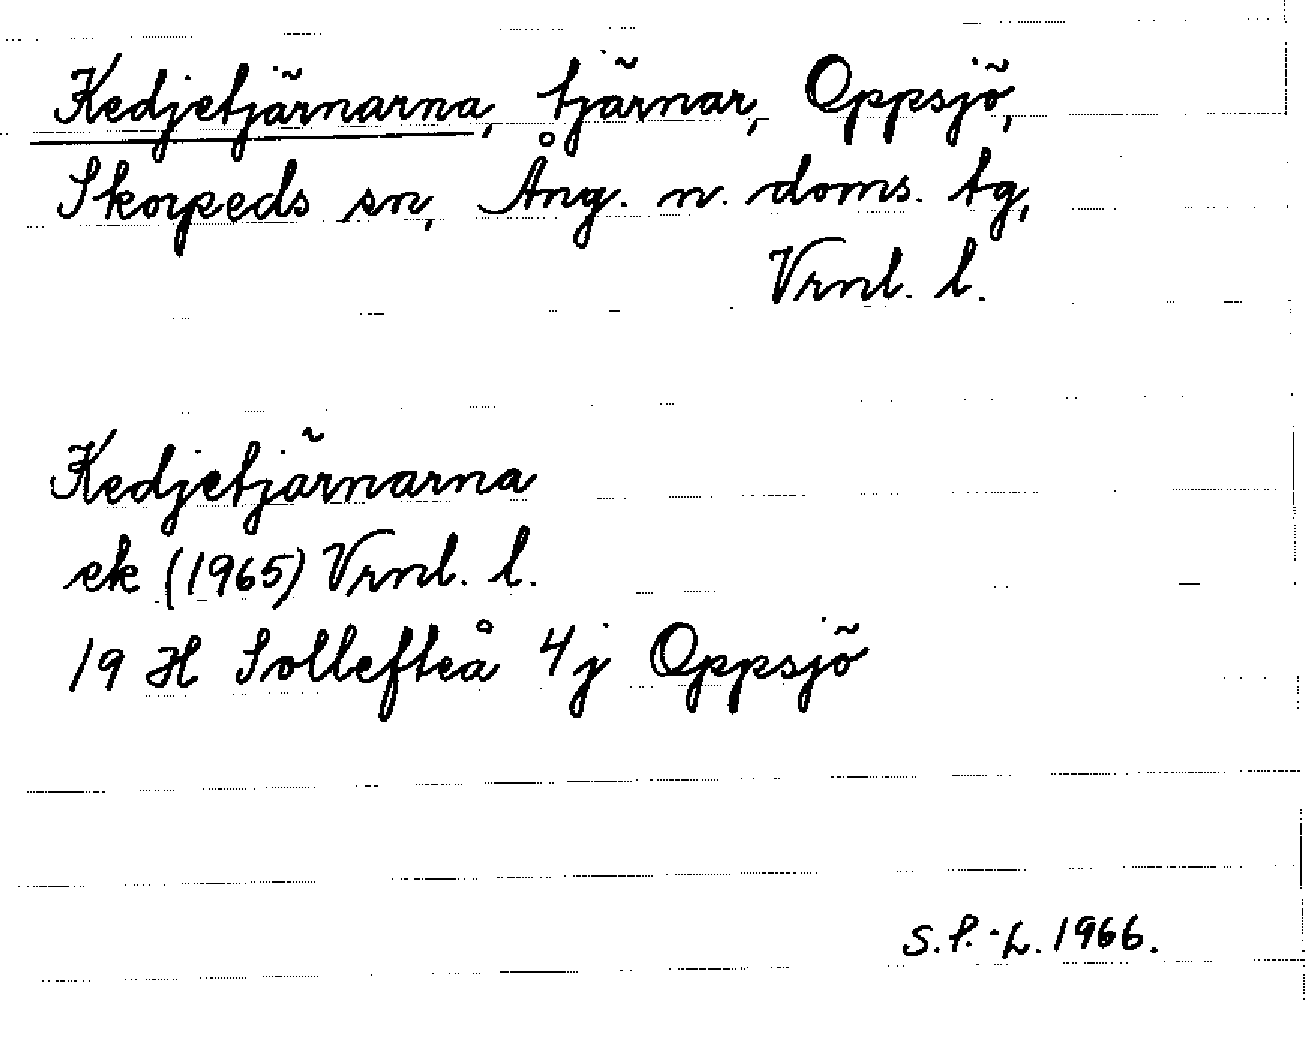 Kedjetjärnarna, tjärnar, Oppsjö,
Skorpeds sn, Ång. n. doms. tg,
Vrnl. l.
Kedjetjärnarna
ek (1965) Vrnl. l.
19 H Sollefteå 4j Oppsjö
S.P.-L. 1966.